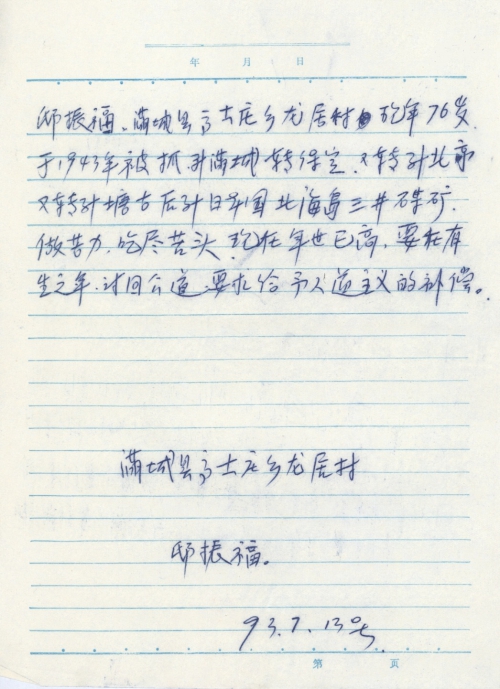 年 月 日
邸振福、满城县方士庄乡龙居村 现年76岁
于1943年被抓到满城转保定.又转到北京
又转到塘古后到日本国北海岛三井煤矿.
做苦力.吃尽苦头.现在年世已高,要在有
生之年.讨回公道.要求给予人道主义的补偿。
满城县方士庄乡龙居村
邸振福。
93.7.13号
第 页